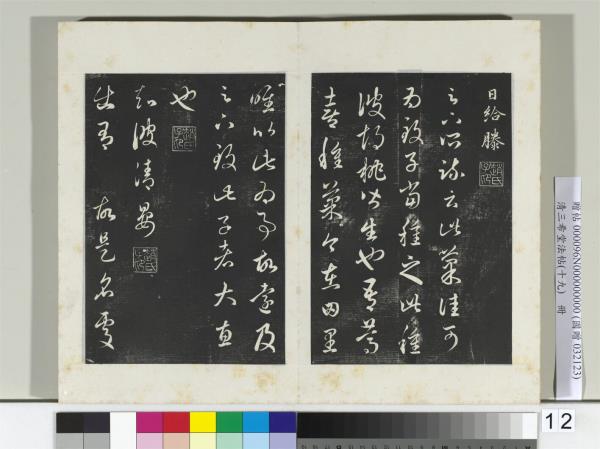 日給滕
足下所疏云此菓佳可
為致子當種之此種
彼胡桃皆生也吾篤
喜種菓今在田里
唯以此為事故遠及
足下致此子者大惠
也
知彼清晏
出有 故是名處
贈帖 000096N000000000 (圓贈 032123)
清三希堂法帖(十九) 冊
12